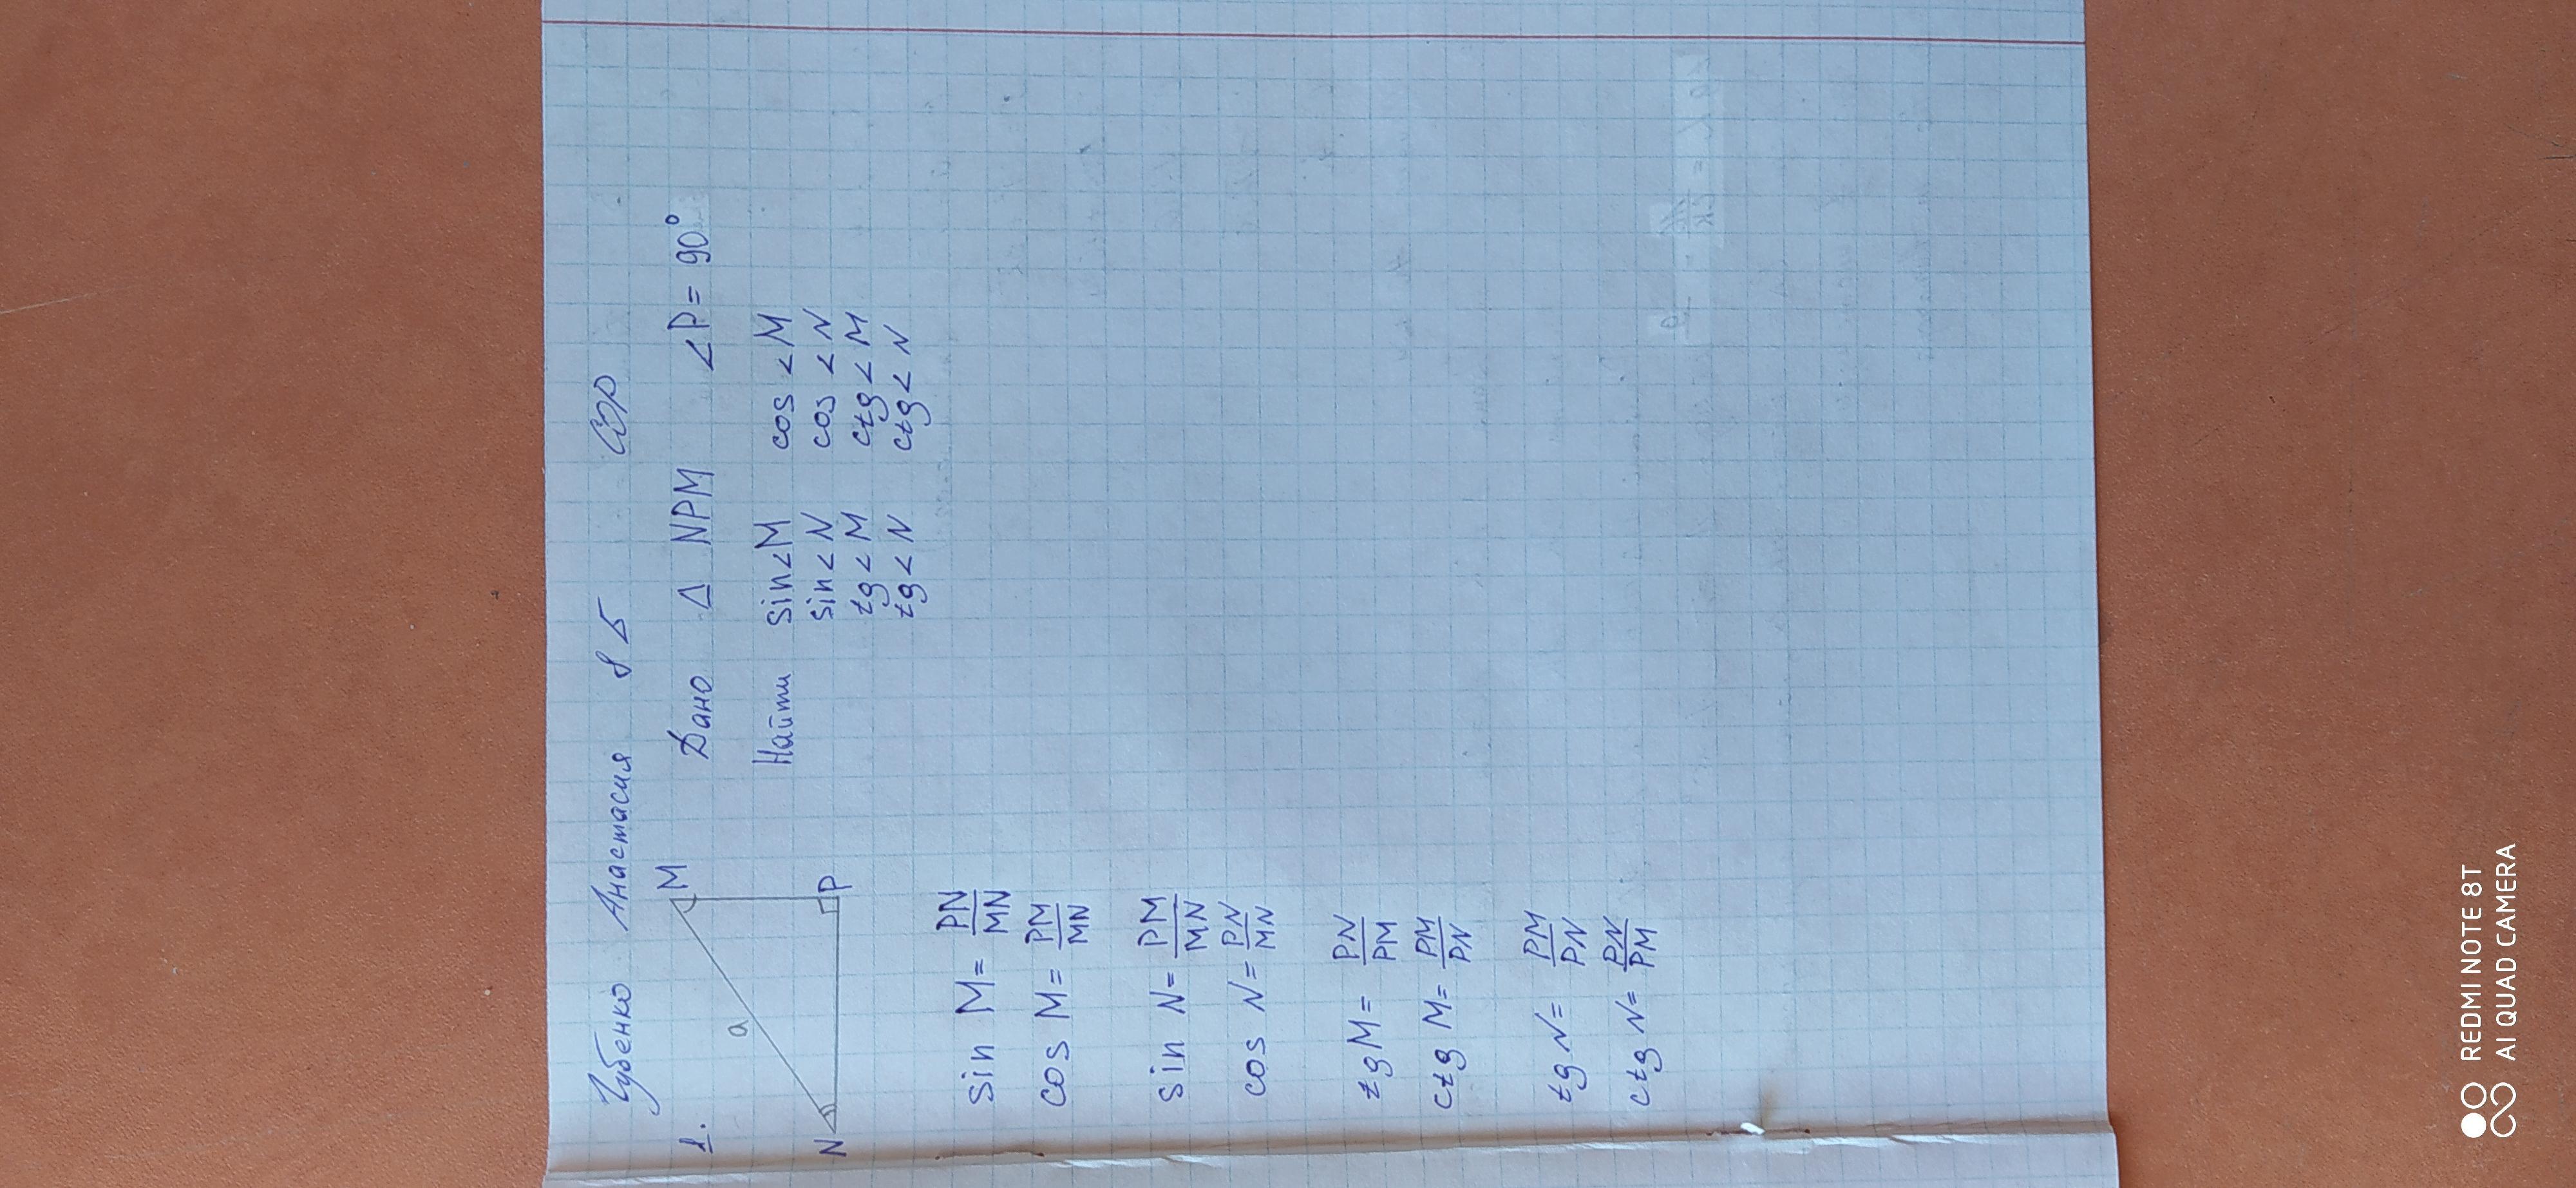 Чубенко Анастасия 8Б СОР
1.
M
a
N
P
Дано Δ NPM <P = 90°
Найти sin<M cos <M
sin<N cos <N
tg<M ctg<M
tg<N ctg<N
sin M= PN/MN
cos M= PM/MN
sin N= PM/MN
cos N= PN/MN
tg M= PN/PM
ctg M= PM/PN
tg N= PM/PN
ctg N= PN/PM
REDMI NOTE 8T
AI QUAD CAMERA